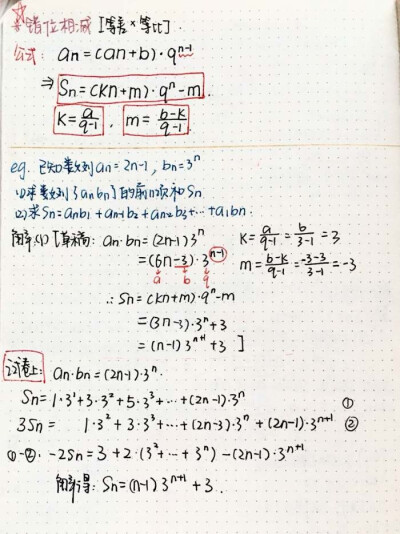 错位相减 [等差×等比].
公式: an=(an+b)·q^(n-1)
⇒ Sn=(kn+m)·q^n-m
K=a/(q-1) , m=(b-K)/(q-1)
eg. 已知数列an=2n-1, bn=3^n
(1)求数列{anbn}的前n项和Sn
(2)求Sn=anb1+an-1b2+an-2b3+…+a1bn.
解:(1) [草稿: an·bn=(2n-1)3^n K=a/(q-1)=6/(3-1)=3
=(6n-3)·3^(n-1) m=(b-K)/(q-1)=(-3-3)/(3-1)=-3
a b q
∴Sn=(kn+m)·q^n-m
=(3n-3)·3^n+3
=(n-1)3^(n+1)+3 ]
试卷上: an·bn=(2n-1)3^n.
Sn=1·3^1+3·3^2+5·3^3+…+(2n-1)·3^n ①
3Sn= 1·3^2+3·3^3+…+(2n-3)·3^n+(2n-1)·3^(n+1) ②
①-②: -2Sn=3+2·(3^2+…+3^n)-(2n-1)·3^(n+1)
解得: Sn=(n-1)3^(n+1)+3.